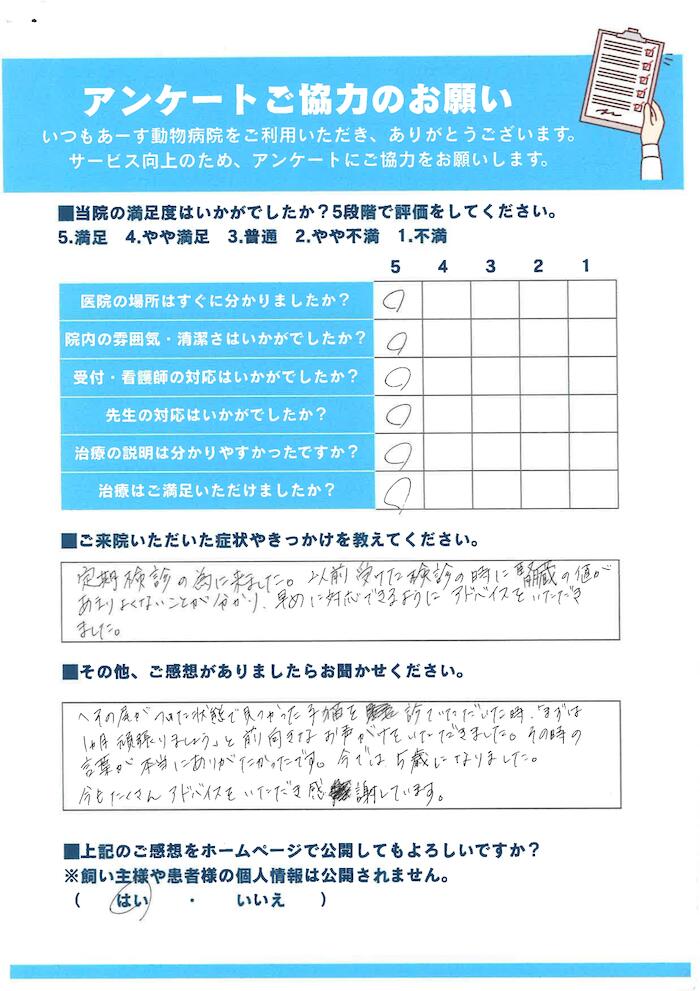 アンケートご協力のお願い
いつもあーす動物病院をご利用いただき、ありがとうございます。
サービス向上のため、アンケートにご協力をお願いします。
■当院の満足度はいかがでしたか？5段階で評価をしてください。
5.満足 4.やや満足 3.普通 2.やや不満 1.不満
5 4 3 2 1
医院の場所はすぐに分かりましたか？
院内の雰囲気・清潔さはいかがでしたか？
受付・看護師の対応はいかがでしたか？
先生の対応はいかがでしたか？
治療の説明は分かりやすかったですか？
治療はご満足いただけましたか？
■ご来院いただいた症状やきっかけを教えてください。
定期検診の為に来ました。以前受けた検診の時に腎臓の値が
あまりよくないことが分かり、早めに対応できるようにアドバイスをいただき
ました。
■その他、ご感想がありましたらお聞かせください。
へその尾がついた状態で見つかった子猫を診ていただいた時、「まずは
1ヶ月頑張りましょう」と前向きなお声がけをいただきました。その時の
言葉が本当にありがたかったです。今では5歳になりました。
今もたくさんアドバイスをいただき感謝しています。
■上記のご感想をホームページで公開してもよろしいですか？
※飼い主様や患者様の個人情報は公開されません。
（ はい ・ いいえ ）